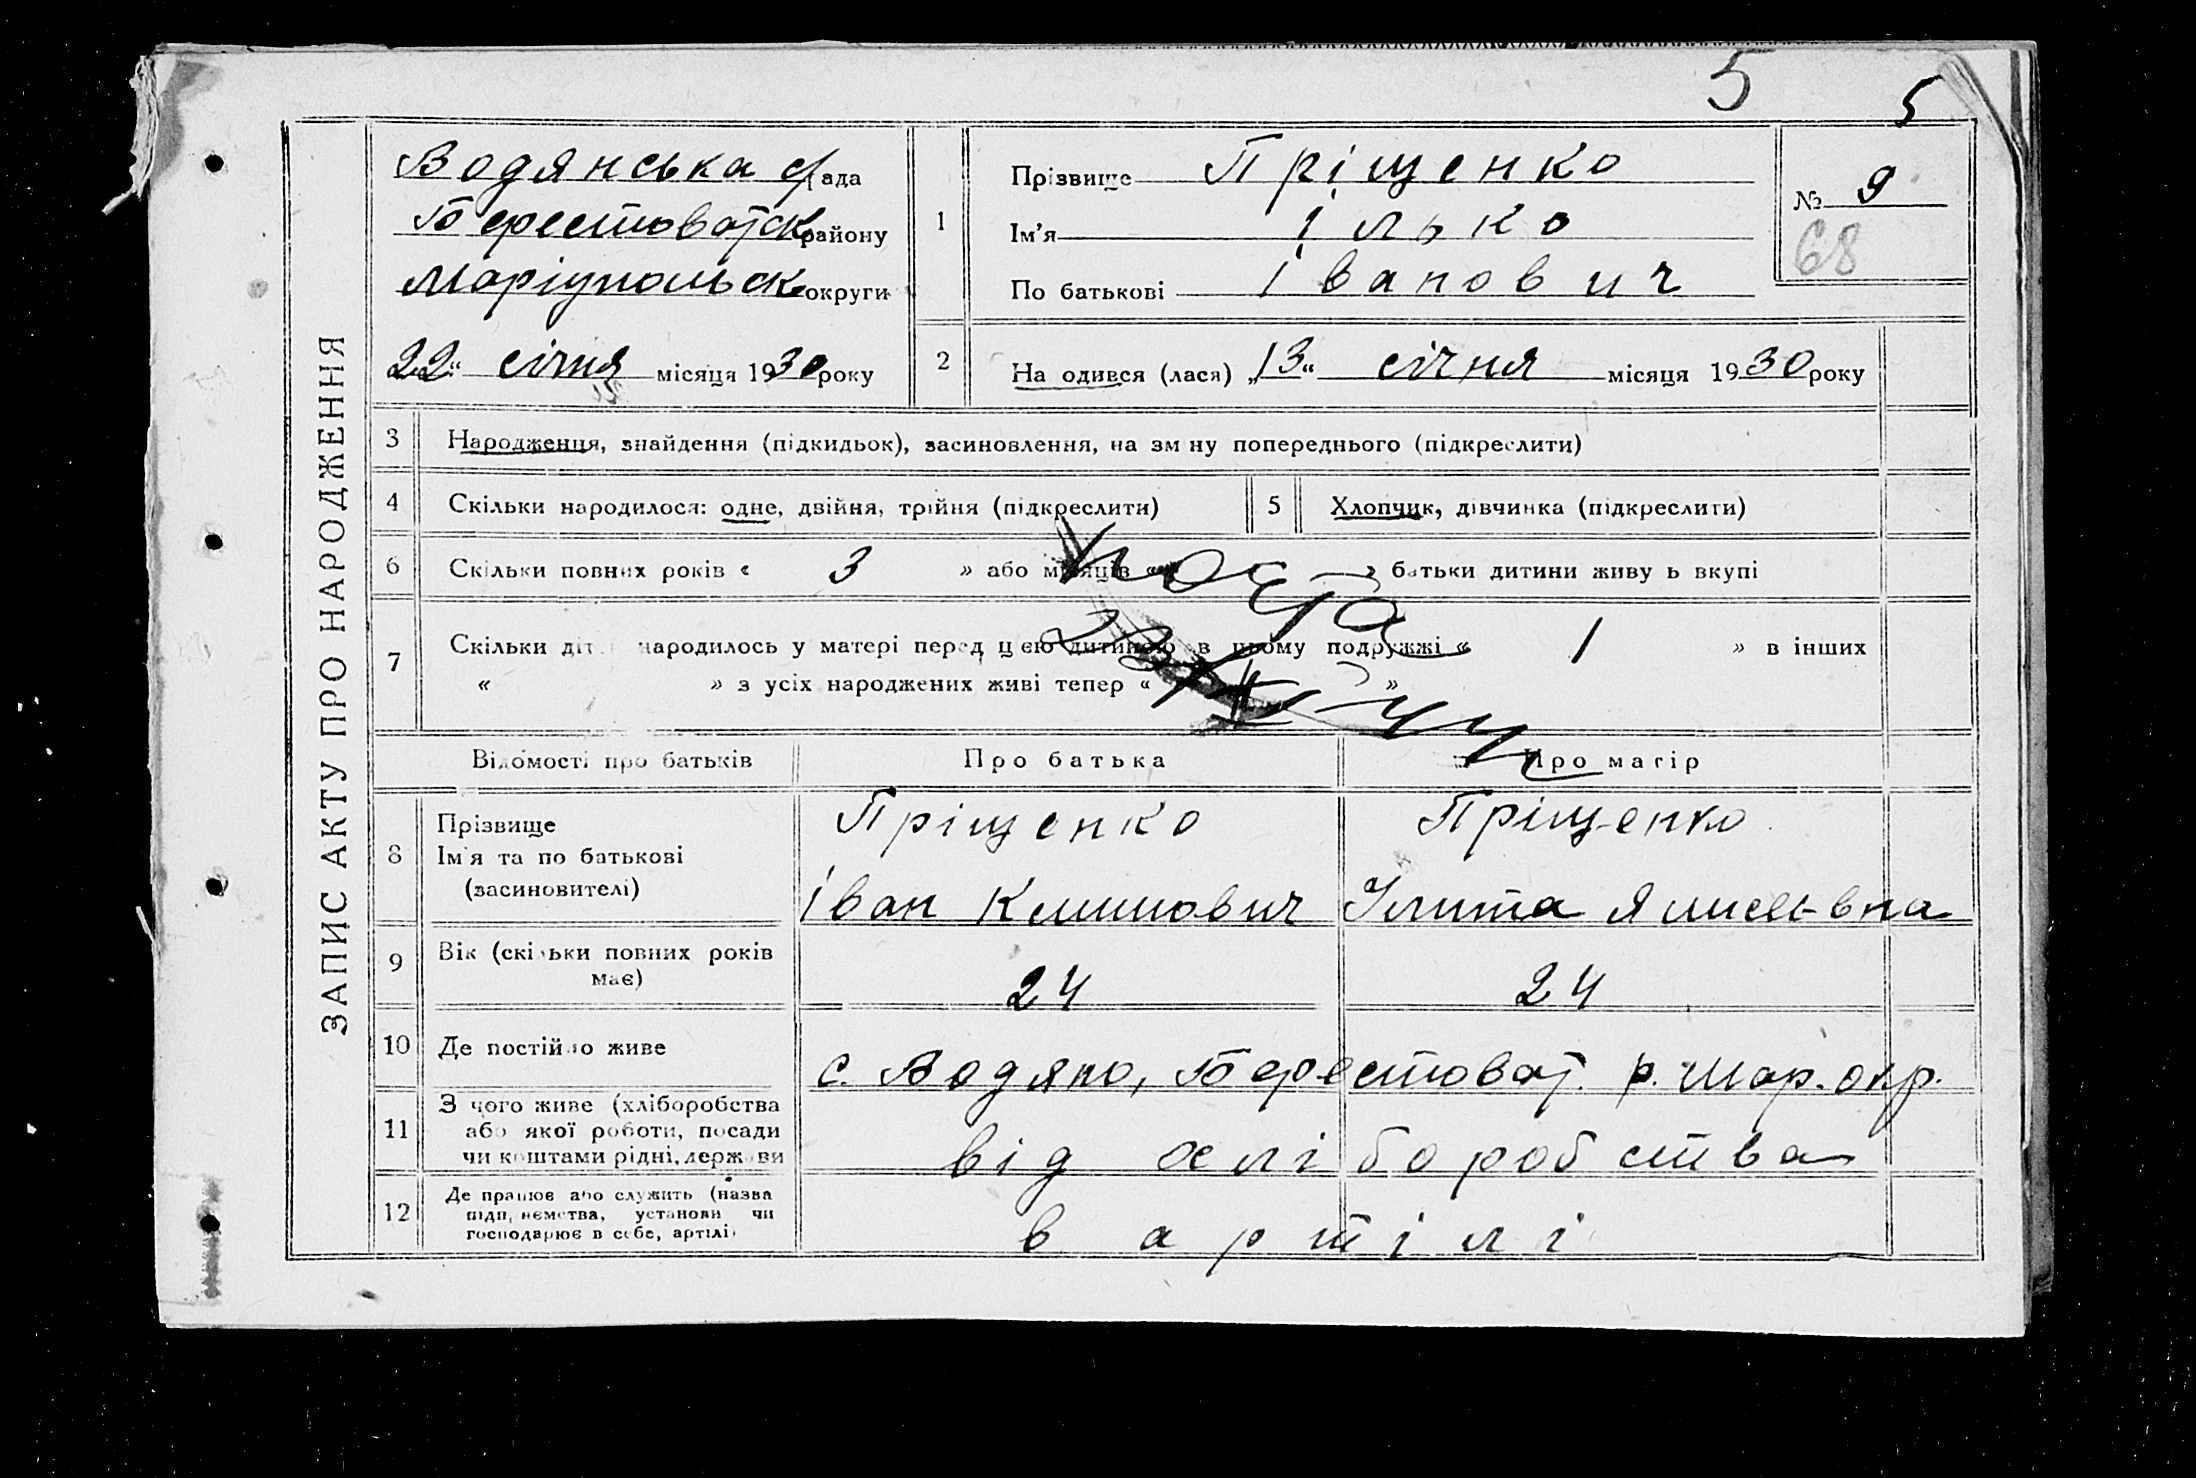 5
5
ЗАПИС АКТУ ПРО НАРОДЖЕННЯ
Водянська с/рада
Берестоватськ району
Маріупольськ округи
22 “ січня місяця 1930 року
1
Прізвище Пріщенко
Ім’я Ілько
По батькові Іванович
№ 9
68
2
На одився (лася) „13“ січня місяця 1930 року
3 Народження, знайдення (підкидьок), засиновлення, на зм ну попереднього (підкреслити)
4 Скільки народилося: одне, двійня, трійня (підкреслити)
5 Хлопчик, дівчинка (підкреслити)
6 Скільки повних років « 3 » або місяців « » батьки дитини живу ь вкупі
7 Скільки діт народилось у матері перед цією дитиною в цьому подружжі « 1 » в інших
« » з усіх народжених живі тепер « »
Відомості про батьків Про батька Про матір
8 Прізвище
Ім’я та по батькові
(засиновителі)
Пріщенко
Іван Климович
Пріщенко
9 Вік (скільки повних років має) 24 24
10 Де постійно живе с. Водяно, Берестоват. р. Мар. окр.
11 З чого живе (хліборобства
або якої роботи, посади
чи коштами рідні, держави
від хліборобства
12 Де працює або служить (назва
підприємства, установи чи
господарює в себе, артілі)
в артілі